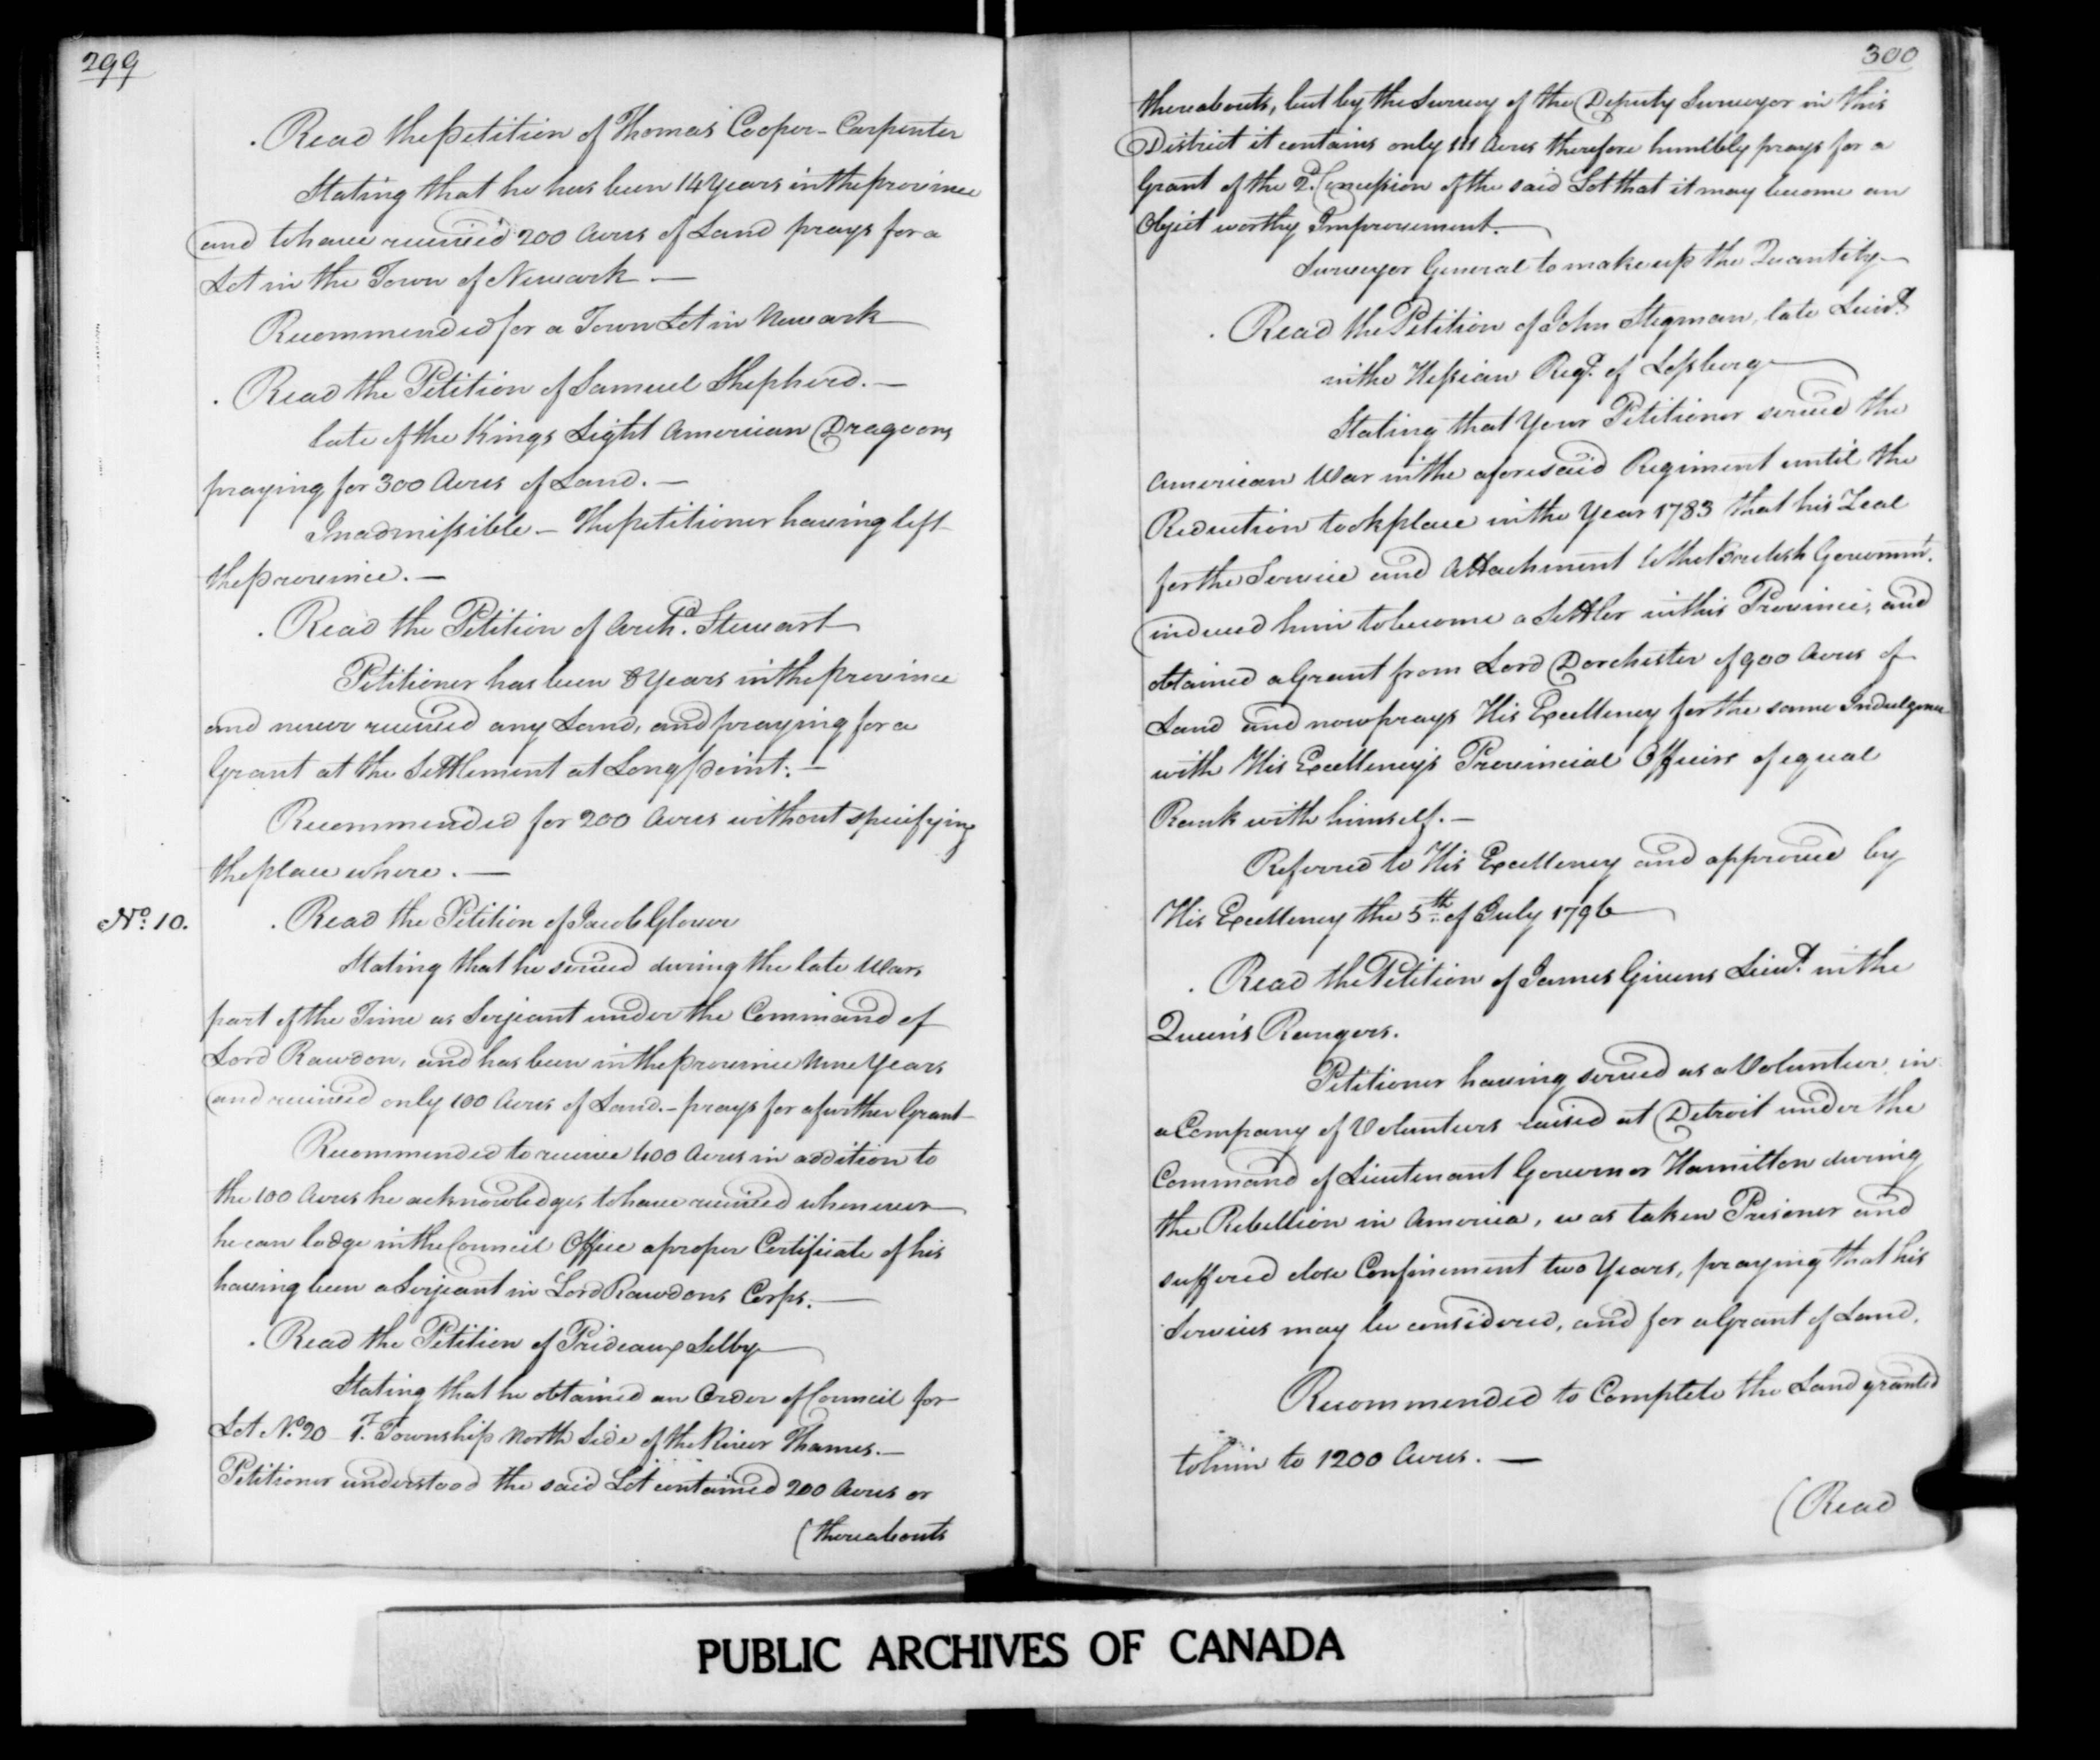 299
Read the petition of Thomas Cooper - Carpenter
Stating that he has been 14 Years in the province
and to have received 200 Acres of Land prays for a
Lot in the Town of Newark. —
Recommended for a Town Lot in Newark
Read the Petition of Samuel Shepherd. —
late of the Kings Light American Dragoons
praying for 300 Acres of Land. —
Inadmissible — The petitioner having left
the province. —
Read the Petition of Archd. Stewart
Petitioner has been 8 Years in the province
and never received any Land, and praying for a
Grant at the Settlement at Long point. —
Recommended for 200 Acres without specifying
the place where. —
No. 10.
Read the Petition of Jacob Glover
Stating that he served during the late War,
part of the Time as Serjeant under the Command of
Lord Rawdon, and has been in the province Nine Years
and received only 100 Acres of Land. - prays for a further Grant
Recommended to receive 400 Acres in addition to
the 100 Acres he acknowledges to have received whenever
he can lodge in the Council Office a proper Certificate of his
having been a Serjeant in Lord Rawdons Corps. —
Read the Petition of Prideaux Selby
Stating that he obtained an Order of Council for
Lot No. 20 1st. Township North Side of the River Thames. —
Petitioner understood the said Lot contained 200 Acres or
(thereabouts
300
thereabouts, but by the Survey of the Deputy Surveyor in this
District it contains only 111 Acres therefore humbly prays for a
Grant of the 2d. Concession of the said Lot that it may become an
Object worthy Improvement.
Surveyor General to make up the Quantity —
Read the Petition of John Stegman, late Lieut.
in the Hessian Regt. of Losberg
Stating that Your Petitioner served the
American War in the aforesaid Regiment until the
Reduction took place in the Year 1783 that his Zeal
for the Service and Attachment to the British Governmt.
induced him to become a Settler in this Province, and
obtained a Grant from Lord Dorchester of 900 Acres of
Land and now prays His Excellency for the same Indulgence
with His Excellency's Provincial Officers of equal
Rank with himself. —
Referred to His Excellency and approved by
His Excellency the 5th. of July 1796
Read the Petition of James Givens Lieut. in the
Queen's Rangers.
Petitioner having served as a Volunteer in
a Company of Volunteers raised at Detroit under the
Command of Lieutenant Governor Hamilton during
the Rebellion in America, was taken Prisoner and
suffered close Confinement two Years, praying that his
Services may be considered, and for a Grant of Land.
Recommended to Complete the Land granted
to him to 1200 Acres. —
(Read
PUBLIC ARCHIVES OF CANADA